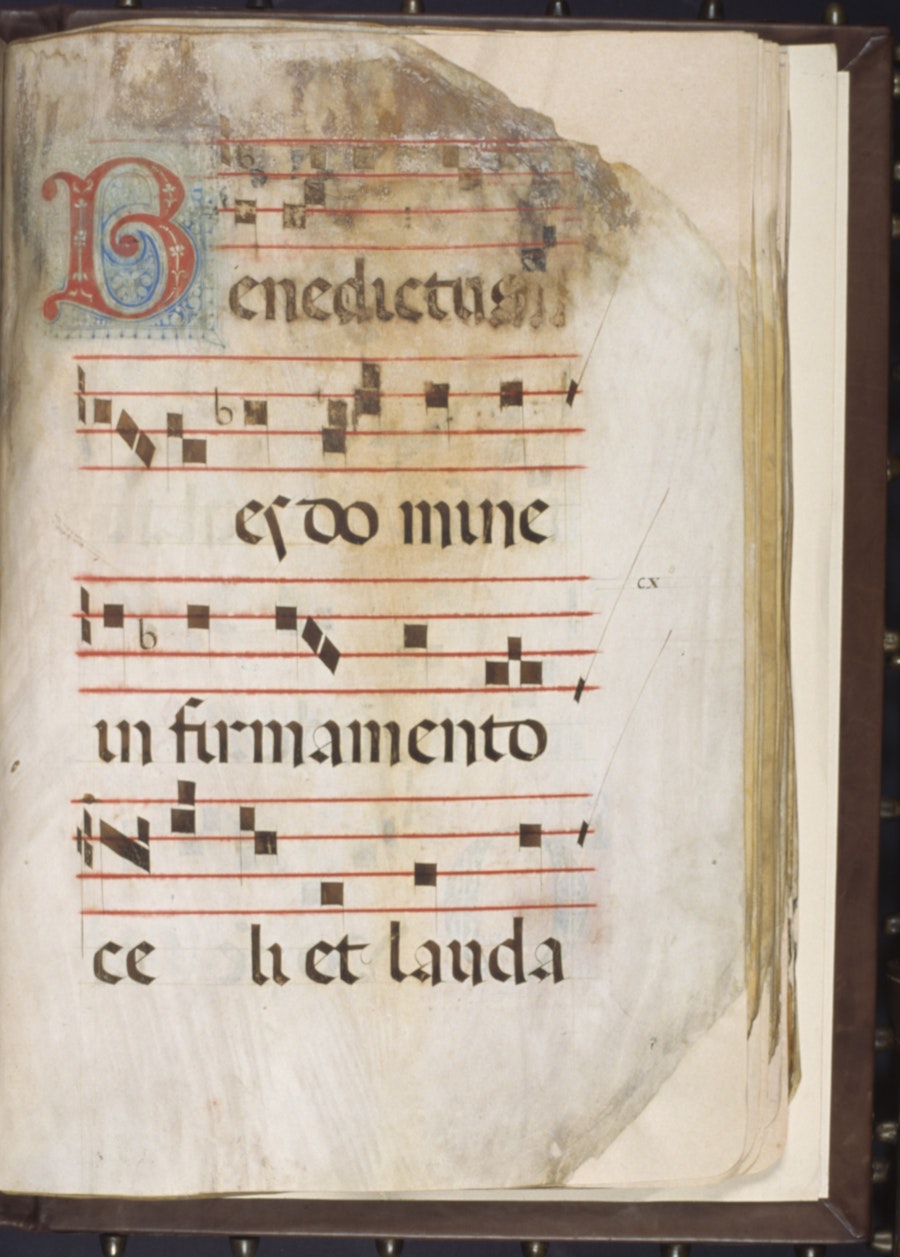 Benedictus
es do mine
cx
in firmamento
ce li et lauda